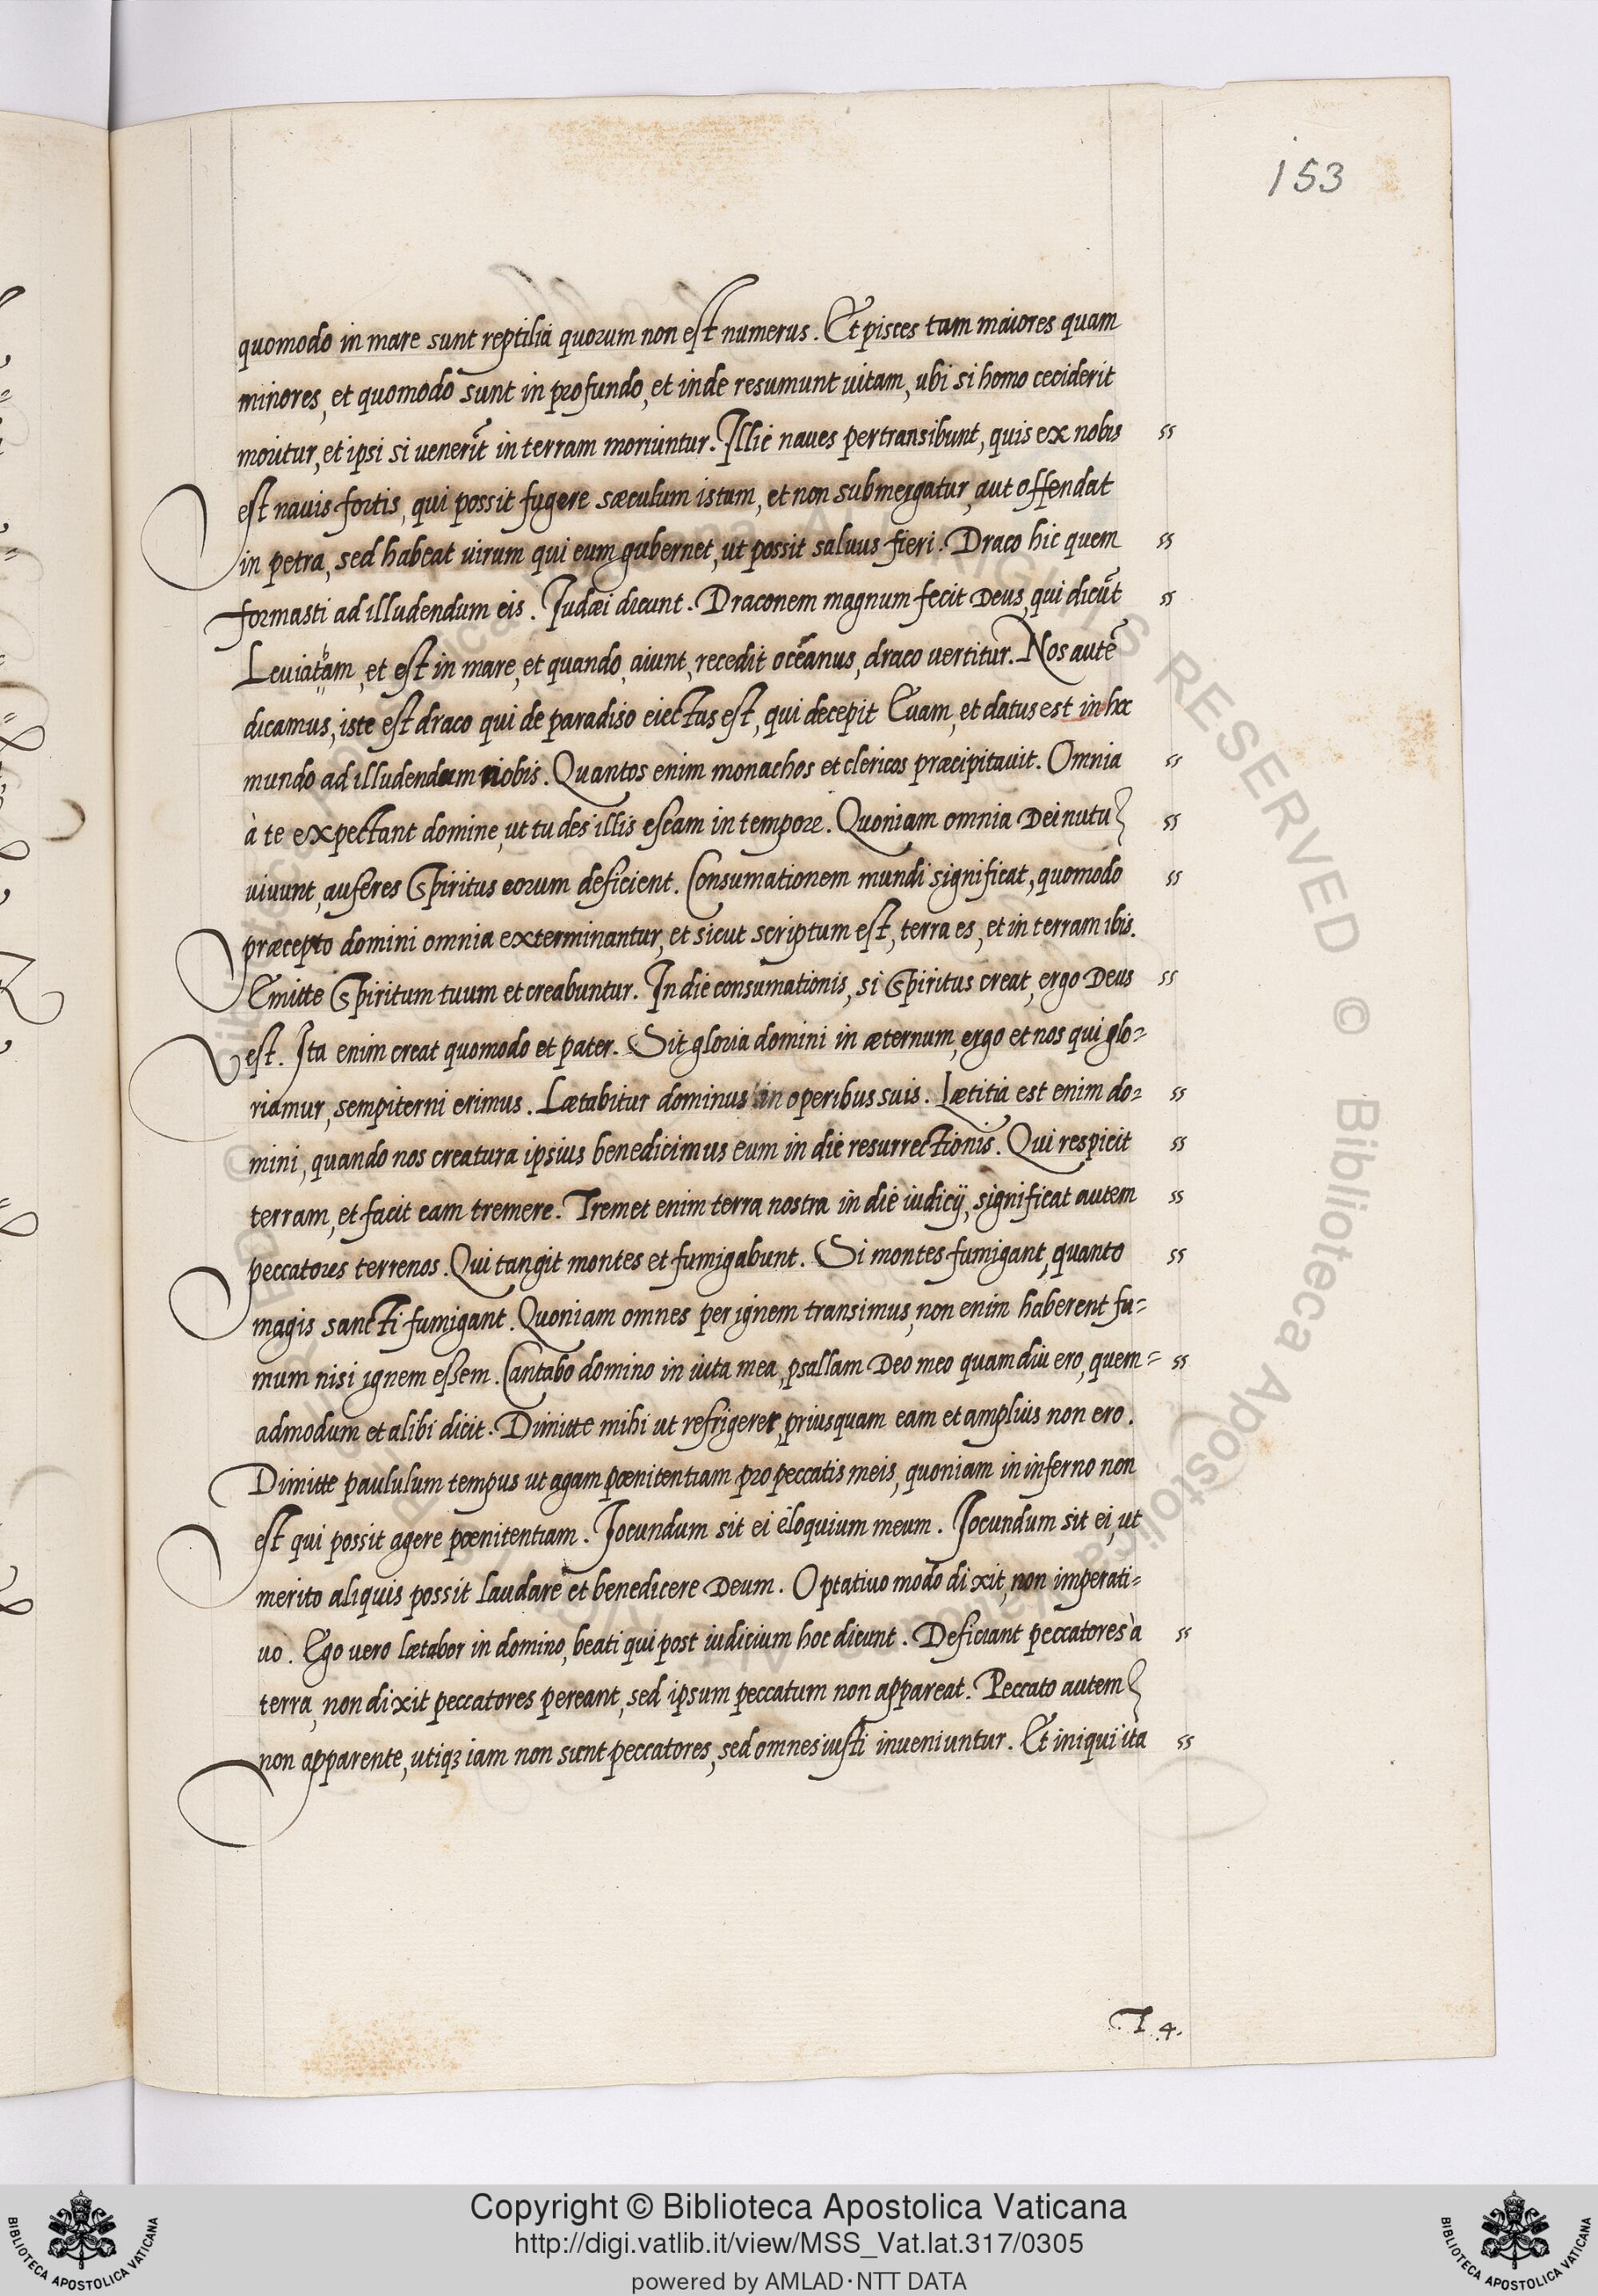 153
quomodo in mare sunt reptilia quorum non est numerus. Et pisces tam maiores quam
minores, et quomodo sunt in profundo, et inde resumunt uitam, ubi si homo ceciderit
moritur, et ipsi si uenerīt in terram moriuntur. Illic naues pertransibunt, quis ex nobis ss
est nauis fortis, qui possit fugere sæculum istum, et non submergatur, aut offendat
in petra, sed habeat uirum qui eum gubernet, ut possit saluus fieri. Draco hic quem ss
formasti ad illudendum eis. Judæi dicunt. Draconem magnum fecit Deus, qui dicūt ss
Leuiatham, et est in mare, et quando, aiunt, recedit oceanus, draco uertitur. Nos autē
dicamus, iste est draco qui de paradiso eiectus est, qui decepit Euam, et datus est in hoc
mundo ad illudendum nobis. Quantos enim monachos et clericos præcipitauit. Omnia ss
à te expectant domine, ut tu des illis escam in tempore. Quoniam omnia Dei nutu ss
uiuunt, auferes Spiritus eorum deficient. Consumationem mundi significat, quomodo ss
præcepto domini omnia exterminantur, et sicut scriptum est, terra es, et in terram ibis.
Emitte Spiritum tuum et creabuntur. In die consumationis, si Spiritus creat, ergo Deus ss
est. Ita enim creat quomodo et pater. Sit gloria domini in æternum, ergo et nos qui glo=
riamur, sempiterni erimus. Lætabitur dominus in operibus suis. Lætitia est enim do= ss
mini, quando nos creatura ipsius benedicimus eum in die resurrectionis. Qui respicit ss
terram, et facit eam tremere. Tremet enim terra nostra in die iudicij, significat autem ss
peccatores terrenos. Qui tangit montes et fumigabunt. Si montes fumigant, quanto ss
magis sancti fumigant. Quoniam omnes per ignem transimus, non enim haberent fu=
mum nisi ignem essem. Cantabo domino in uita mea, psallam Deo meo quamdiu ero, quem= ss
admodum et alibi dicit. Dimitte mihi ut refrigerer, priusquam eam et amplius non ero.
Dimitte paululum tempus ut agam pœnitentiam pro peccatis meis, quoniam in inferno non
est qui possit agere pœnitentiam. Jocundum sit ei eloquium meum. Jocundum sit ei, ut
merito aliquis possit laudare et benedicere Deum. Optatiuo modo dixit, non imperati=
uo. Ego uero lætabor in domino, beati qui post iudicium hoc dicunt. Deficiant peccatores à ss
terra, non dixit peccatores pereant, sed ipsum peccatum non appareat. Peccato autem
non apparente, utiqꝫ iam non sunt peccatores, sed omnes iusti inueniuntur. Et iniqui ita ss
T. 4.
Copyright © Biblioteca Apostolica Vaticana
http://digi.vatlib.it/view/MSS_Vat.lat.317/0305
powered by AMLAD·NTT DATA
BIBLIOTECA APOSTOLICA VATICANA
BIBLIOTECA APOSTOLICA VATICANA